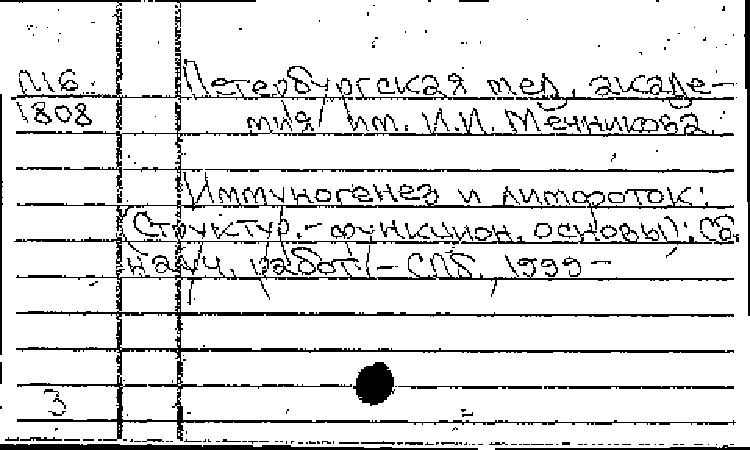 П16. Петербургская мед. акаде-
1808 мия им. И.И. Мечникова
Иммуногенез и лимфоток:
(Структур.-функцион. основы): Сб.
науч. работ. – СПб. 1999 –
3